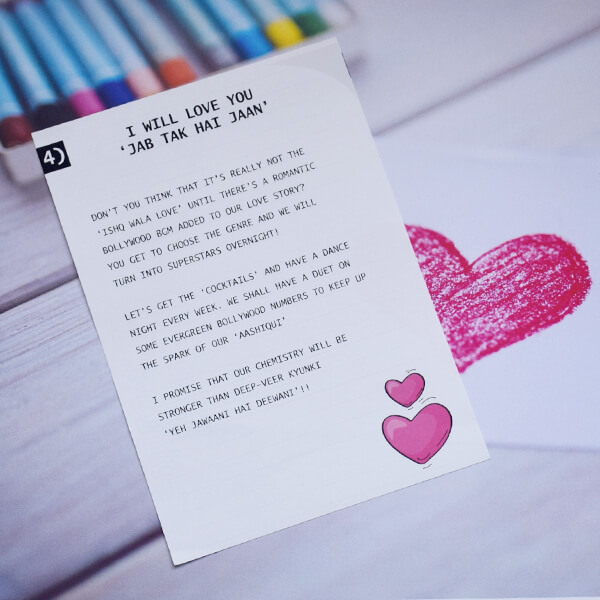 4)
I WILL LOVE YOU
'JAB TAK HAI JAAN'
DON'T YOU THINK THAT IT'S REALLY NOT THE
'ISHQ WALA LOVE' UNTIL THERE'S A ROMANTIC
BOLLYWOOD BGM ADDED TO OUR LOVE STORY?
YOU GET TO CHOOSE THE GENRE AND WE WILL
TURN INTO SUPERSTARS OVERNIGHT!
LET'S GET THE 'COCKTAILS' AND HAVE A DANCE
NIGHT EVERY WEEK. WE SHALL HAVE A DUET ON
SOME EVERGREEN BOLLYWOOD NUMBERS TO KEEP UP
THE SPARK OF OUR 'AASHIQUI'
I PROMISE THAT OUR CHEMISTRY WILL BE
STRONGER THAN DEEP-VEER KYUNKI
'YEH JAWAANI HAI DEEWANI'!!